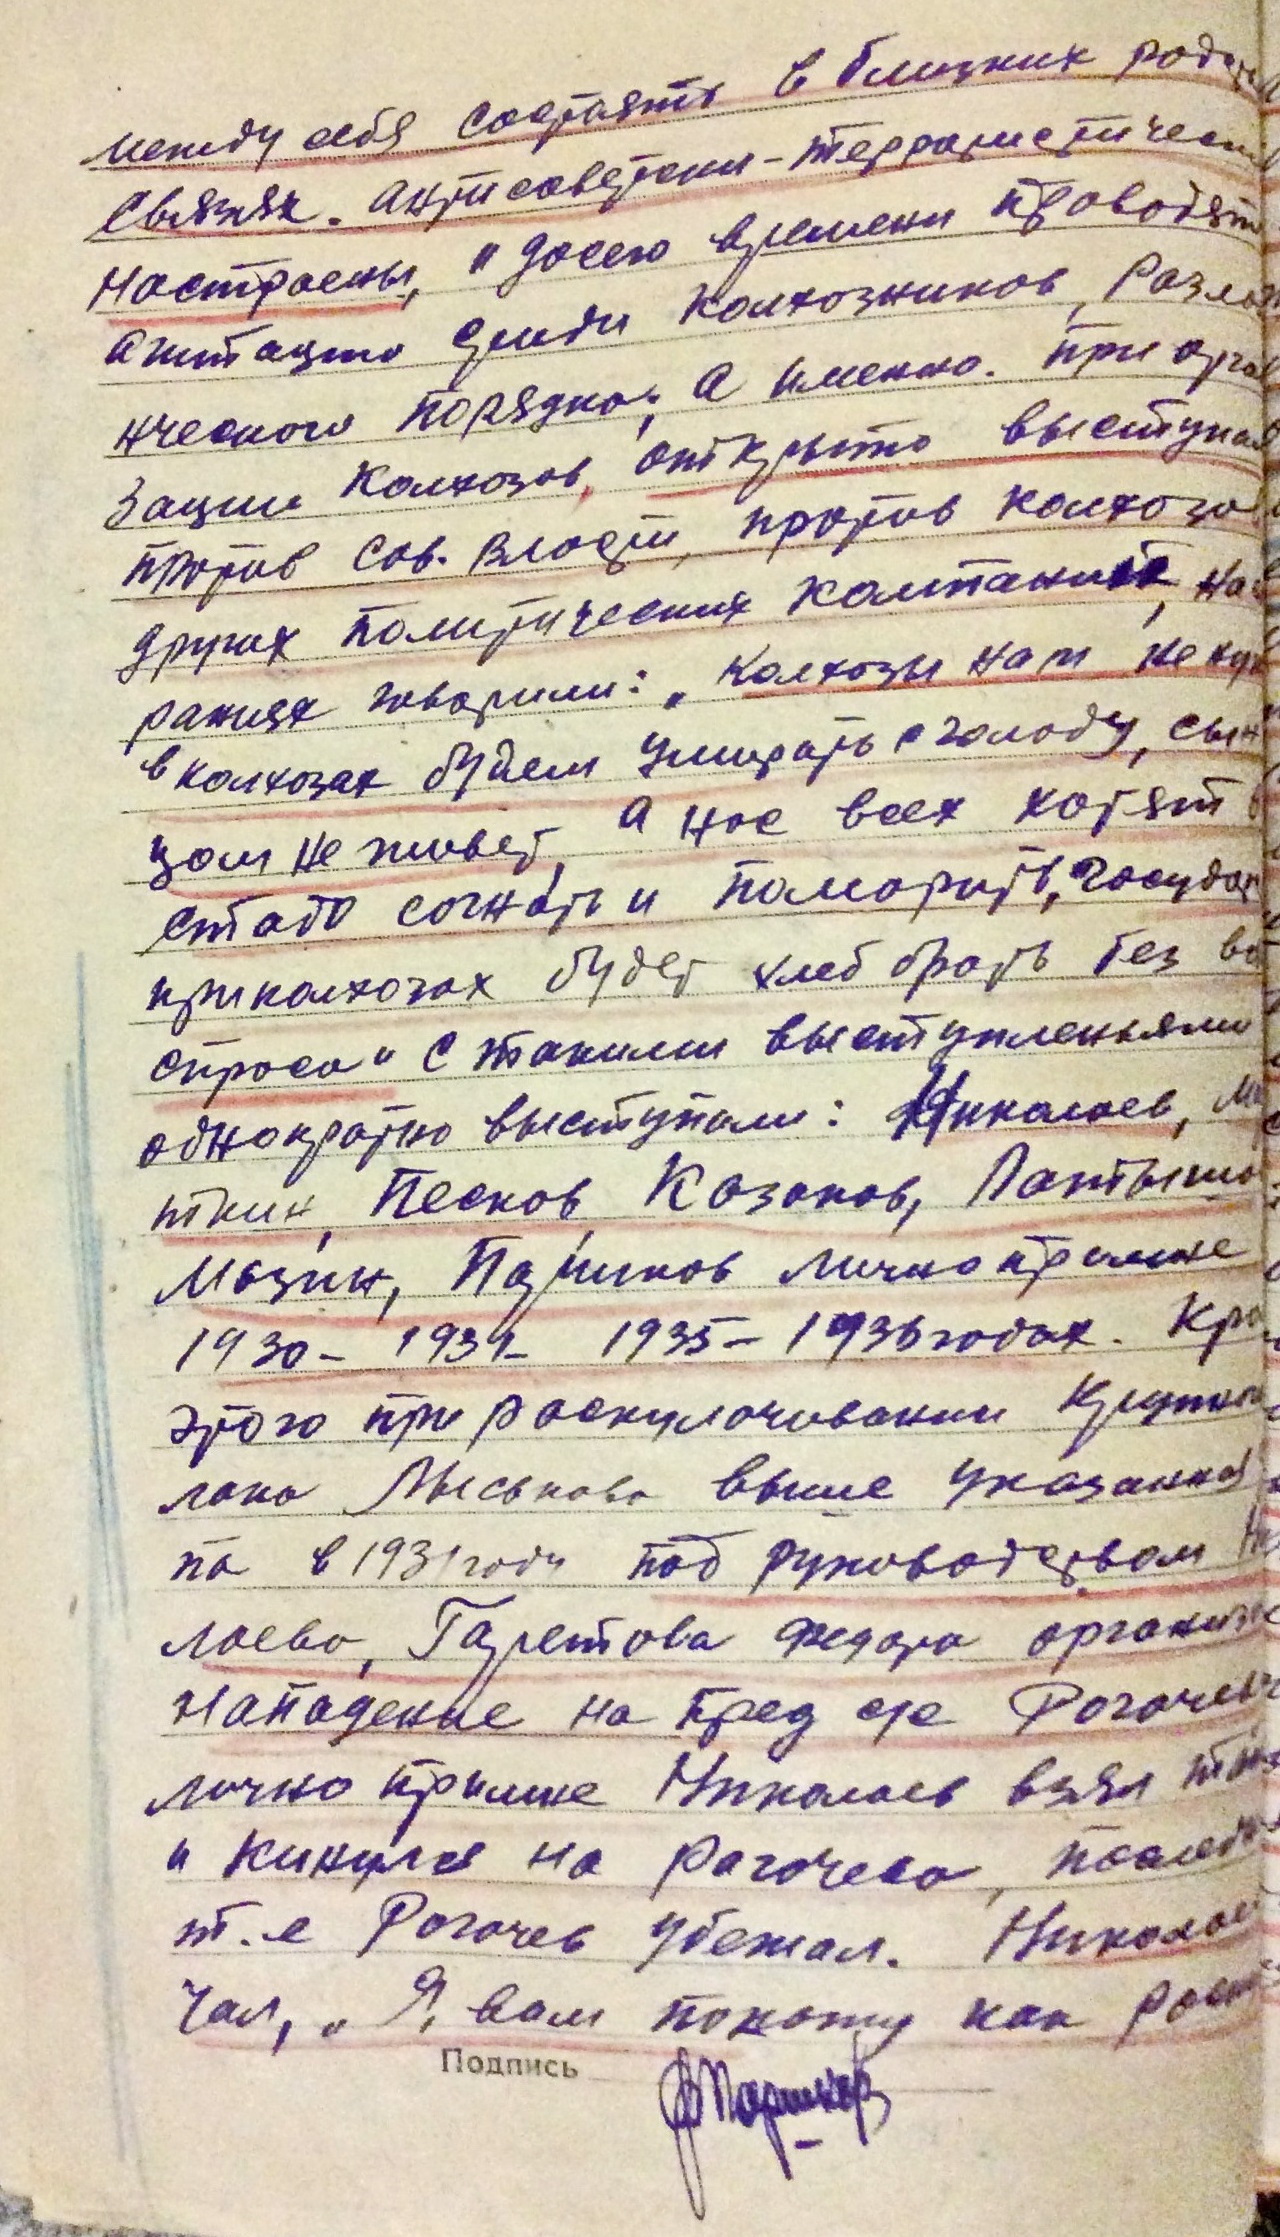 между себя состоять в близких родст
связях. антисоветски-террористическ
настроены, и досею времени проводят
агитацию среди колхозников, разло
ческого порядка, а именно. При орга
зации колхозов, открыто выступал
против сов. власти, против колхозо
других политических кампаний, на
раниях говорили: „Колхозы нам не нуж
в колхозах будем умирать с голоду, сын
цом не живет, а нас всех хотят в
стадо согнать и поморить, государ
приколхозах будет хлеб брать без во
спроса" С такими выступленьями
однократно выступали: Николаев,
ткин, Песков, Казаков, Лактюшо
Мазин, Паршков лично примне
1930- 1931- 1935- 1936 годах. Кро
этого при роскулачивании Крупно
лака Лыськова выше указанна
па в 1931 году под руководством Ни
лаева, Гаретова Федора организо
Нападенье на пред с/с Рогачева
лично примне Николаев взял
и кинулся на Рогачева, последн
т.е Рогачев убежал. Николаев
чал, „Я вам покажу как раск
Подпись